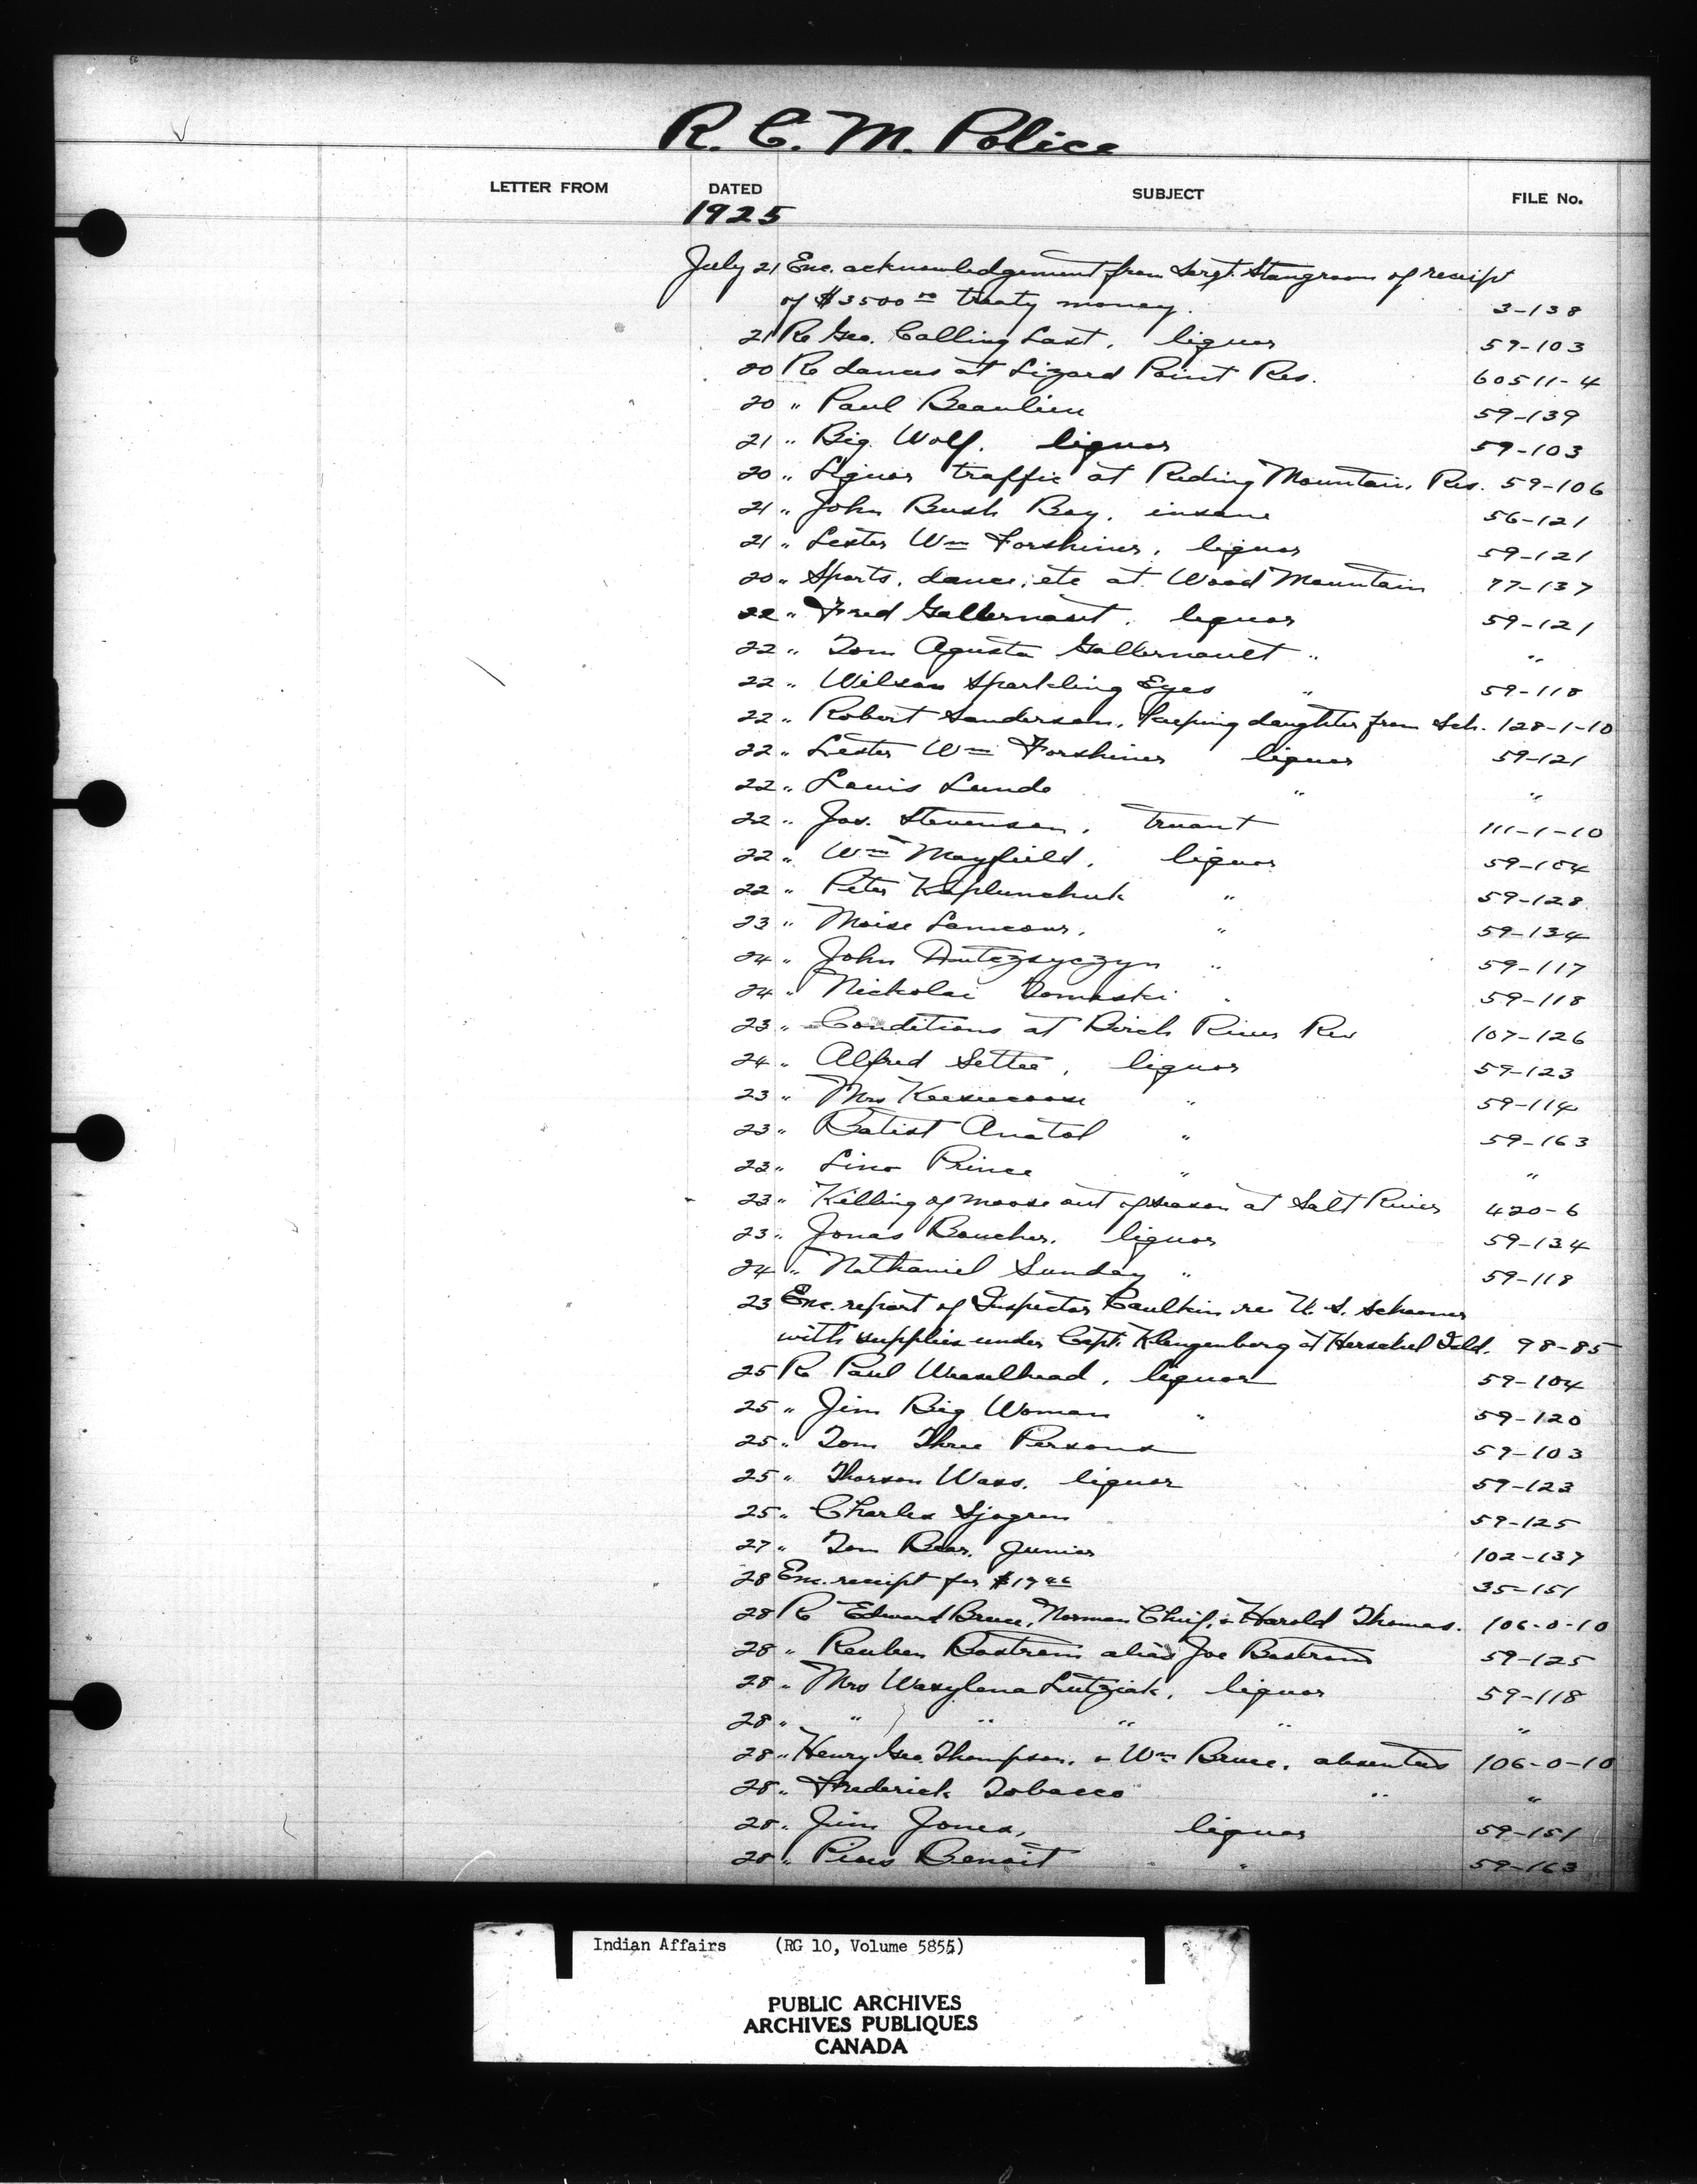 R. C. M. Police
LETTER FROM DATED SUBJECT FILE No.
1925
July 21 Enc. acknowledgement from Sergt. Stangroom of receipt
of $3500 00 treaty money. 3-138
21 Re Geo. Calling Last. liquor 59-103
20 Re dances at Lizard Point Res. 60511-4
20 " Paul Beaulieu 59-139
21 " Big Wolf. liquor 59-103
20 " Liquor traffic at Riding Mountain. Res. 59-106
21 " John Bush Boy. insane 56-121
21 " Lester Wm Forshiner. liquor 59-121
20 " Sports, dance, etc at Wood Mountain 77-137
22 " Fred Gallernault. liquor 59-121
22 " Tom Agusta Gallernault " "
22 " Wilson Sparkling Eyes " 59-118
22 " Robert Sanderson. Keeping daughter from Sch. 128-1-10
22 " Lester Wm Forshiner liquor 59-121
22 " Louis Lunde " "
22 " Jos. Stevenson. Truant 111-1-10
22 " Wm Mayfield. liquor 59-104
22 " Peter Kaplunchuk " 59-128
23 " Moise " 59-134
24 " John " 59-117
24 " Nickolai Tomaski " 59-118
23 " Conditions at Birch River Res 107-126
24 " Alfred Settee, liquor 59-123
23 " Mrs " 59-114
23 " Batist Anatol " 59-163
23 " Lino Prince " "
23 " Killing of moose out of season at Salt River 420-6
23 " Jonas Boucher. liquor 59-134
24 " Nathaniel Sunday " 59-118
23 Enc. report of Inspector Caulkin re U. S. schooner
with supplies under Capt. Klengenberg at Herschel Isld. 98-85
25 Re Paul Weaselhead, liquor 59-104
25 " Jim Big Woman " 59-120
25 " Tom Three Persons 59-103
25 " Thorson Wass. liquor 59-123
25 " Charles Sjogren 59-125
27 " Tom Bear. Junior 102-137
28 Enc. receipt for 35-151
28 Re Edward Bruce, Norman Chief, & Harold Thomas. 106-0-10
28 " Reuben Bostrom alias Joe Bostrom 59-125
28 " Mrs Wasylena Lutziak, liquor 59-118
28 " " " " " "
28 " Henry Geo. Thompson. & Wm Bruce. absentees 106-0-10
28 " Frederick Tobacco " "
28 " Jim Jones, liquor 59-151
28 " Pius Benoit " 59-163
Indian Affairs (RG 10, Volume 5855)
PUBLIC ARCHIVES
ARCHIVES PUBLIQUES
CANADA